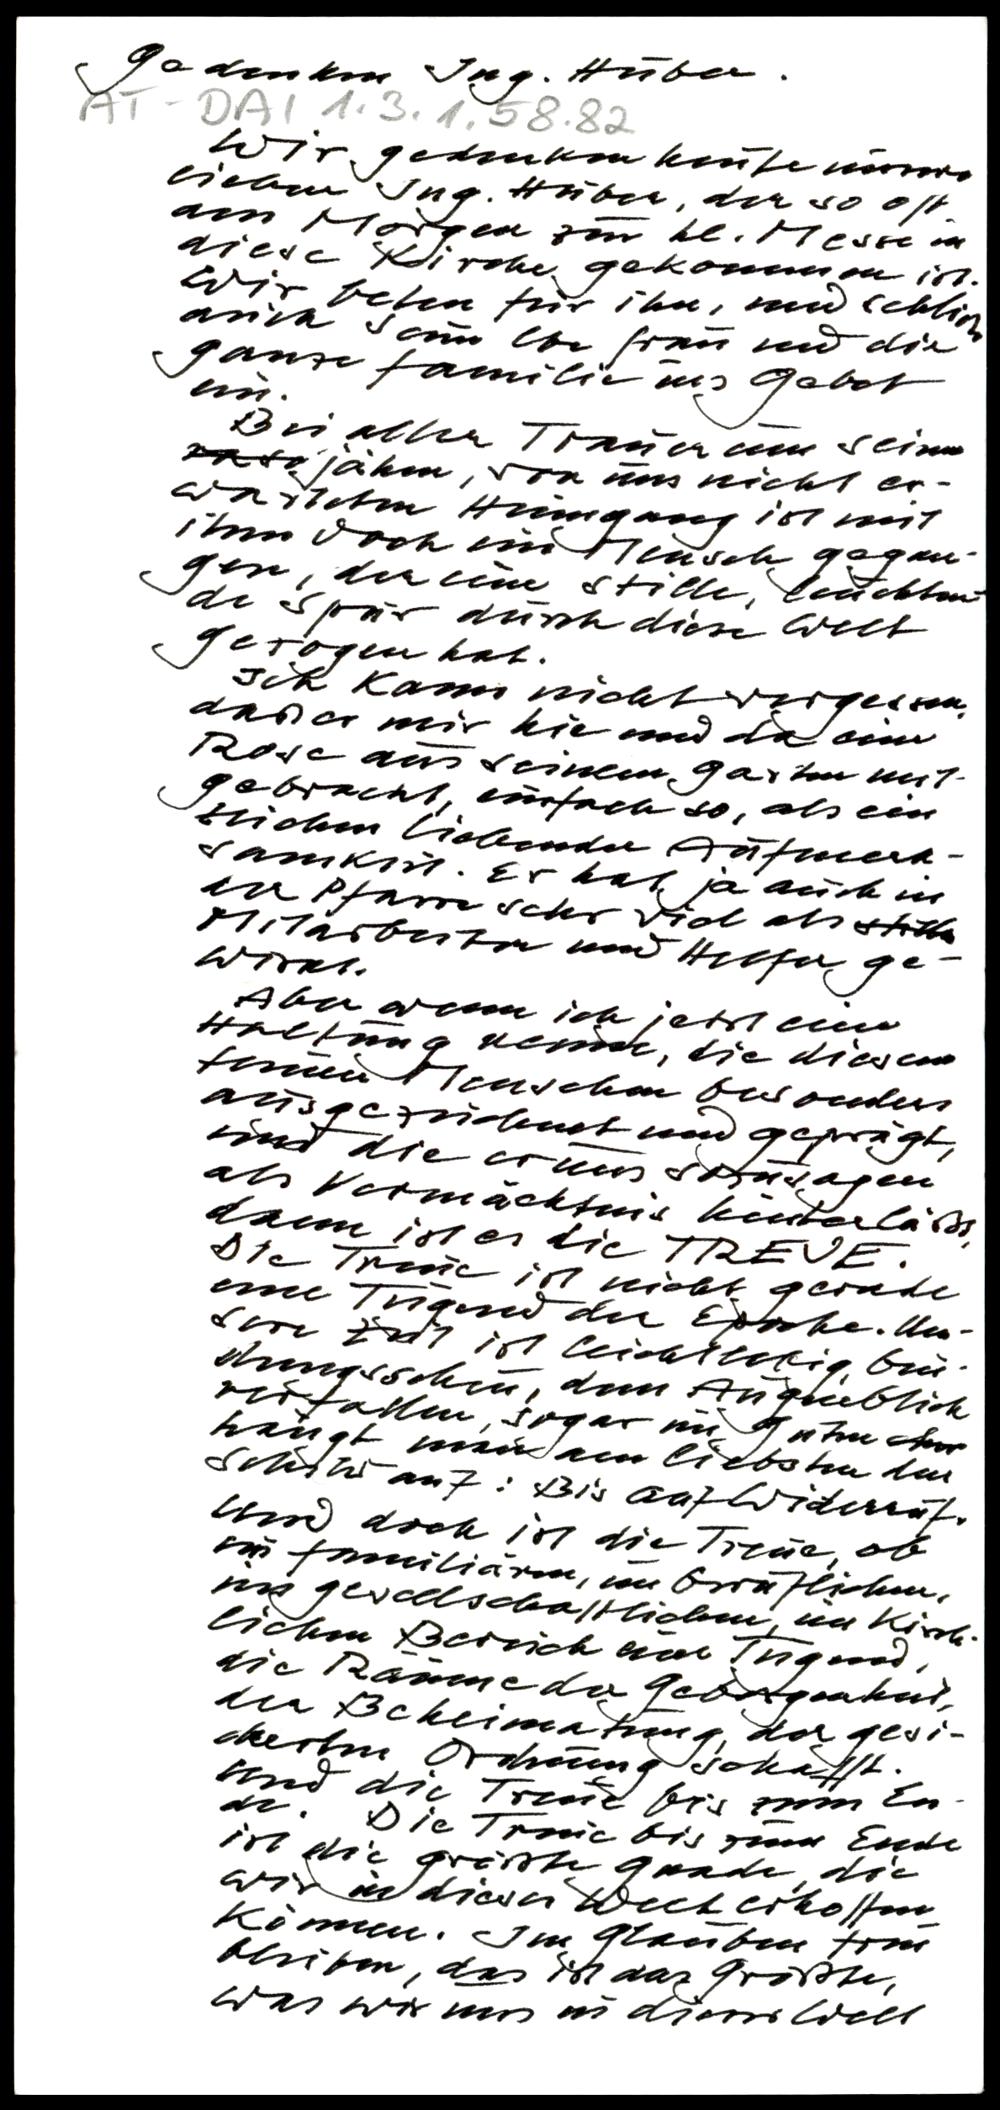 Gedenken Ing. Huber.
AT-DAI 1.3.1.58.82
Wir gedenken heute unseres
lieben Ing. Huber, der so oft
am Morgen zur hl. Messe in
diese Kirche gekommen ist.
Wir beten für ihn, und schließen
auch seine lbe Frau und die
ganze Familie ins Gebet
ein.
Bei aller Trauer um seinen
jähen, von uns nicht er-
warteten Heimgang ist mit
ihm doch ein Mensch gegan-
gen, der eine stille, leuchten-
de Spur durch diese Welt
gezogen hat.
Ich kann nicht vergessen,
dass er mir hie und da eine
Rose aus seinem Garten mit-
gebracht, einfach so, als ein
Zeichen liebender Aufmerk-
samkeit. Er hat ja auch in
der Pfarre sehr viel als stiller
Mitarbeiter und Helfer ge-
wirkt.
Aber wenn ich jetzt eine
Haltung nenne, die diesen
feinen Menschen besonders
ausgezeichnet und geprägt,
und die er uns sozusagen
als Vermächtnis hinterlässt,
dann ist es die TREUE.
Die Treue ist nicht gerade
eine Tugend der Epoche. Un-
sere Zeit ist leichtlebig, bin-
dungsscheu, dem Augenblick
verfallen, sogar im Guten
hängt man am liebsten den
Schild auf: Bis auf Widerruf.
Und doch ist die Treue, ob
im familiären, im beruflichen,
im gesellschaftlichen, im kirch-
lichen Bereich eine Tugend,
die Räume der Geborgenheit,
der Beheimatung, der gesi-
cherten Ordnung schafft.
Und die Treue bis zum En-
de. Die Treue bis zum Ende
ist die größte Gnade, die
wir in dieser Welt erhoffen
können. Im Glauben treu
bleiben, das ist das Größte,
was wir uns in dieser Welt